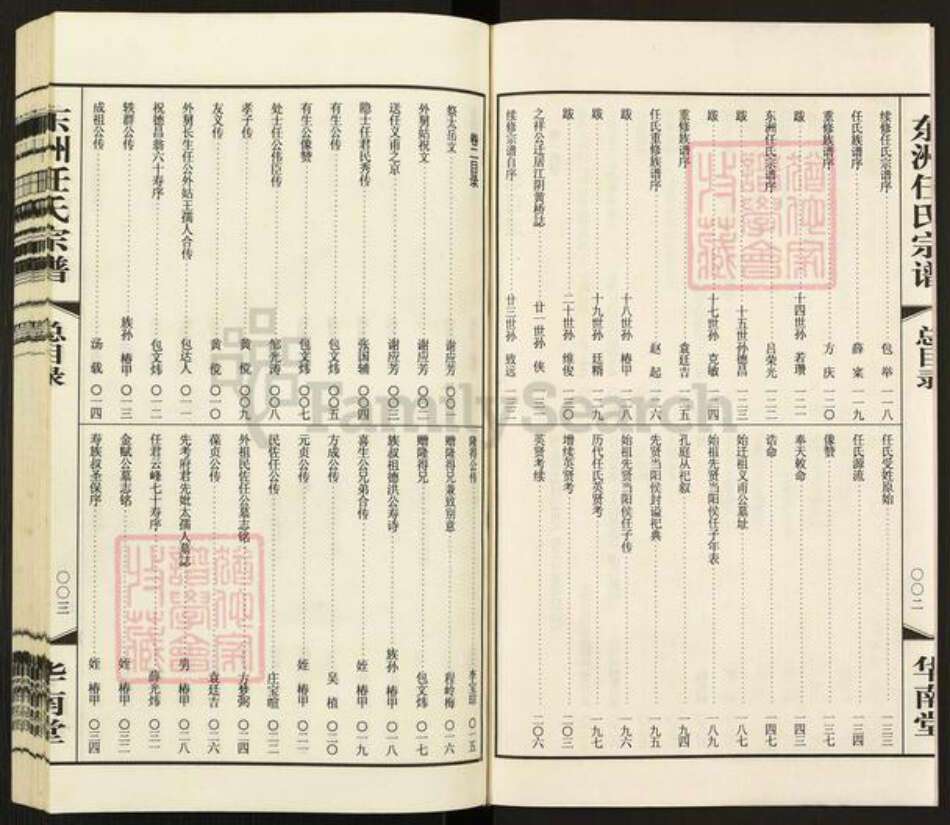 东洲任氏宗谱 总目录 〇〇二 华南堂
续修任氏宗谱序 包 举 一一八
任氏族谱序 薛 一一九
重修族谱序 方 庆 一二〇
跋 十四世孙 若瓒 一二一
东洲任氏宗谱序 吕荣光 一二二
跋 十五世孙德昌 一二三
跋 十七世孙 克敏 一二四
重修族谱序 袁廷吉 一二五
任氏重修族谱序 赵 起 一二六
跋 十八世孙 椿甲 一二八
跋 十九世孙 廷 一二九
跋 二十世孙 维俊 一三〇
之祥公迁居江阴黄桥誌 廿一世孙 侠
续修宗谱自序 廿三世孙 致远
任氏受姓原始 一三三
任氏源流 一三四
像赞 一三七
奉天敕命 一四三
诰命 一四七
始迁祖义甫公墓址 一八七
始祖先贤当阳侯任子年表 一八九
孔庭从祀叙 一九四
先贤当阳侯封谥祀典 一九五
始祖先贤当阳侯任子传 一九六
历代任氏英贤考 一九七
增续英贤考 二〇三
英贤考续 二〇六
卷二目录
祭太岳文 谢应芳 〇〇一
外舅姑祝文 谢应芳 〇〇二
送任义甫之京 谢应芳 〇〇三
隐士任君民秀传 张国辅 〇〇四
有生公传 包文炜 〇〇五
有生公像赞 包文炜 〇〇七
处士任公伟臣传 邹光涛 〇〇八
孝子传 黄 傥 〇〇九
友义传 黄 傥 〇一〇
外舅长生任公外姑王孺人合传 包达人 〇一一
祝德昌翁六十寿序 包文炜 〇一二
轶群公传 族孙 椿甲 〇一三
成祖公传 汤 载 〇一四
隆得公传 〇一五
赠隆得公兄兼致别意 程岭梅 〇一六
赠隆得公兄 包文炜 〇一七
族叔祖德洪公寿诗 族孙 椿甲 〇一八
喜生公兄弟合传 姪 椿甲 〇一九
方成公传 吴 植 〇二〇
元贞公传 姪 椿甲 〇二一
民佐任公传 庄宝暄 〇二二
外祖民佐任公墓志铭 方梦弼 〇二四
葆贞公传 袁廷吉 〇二六
先考府君先妣太孺人墓誌 男 椿甲 〇二八
任君云峰七十寿序 薛光炜 〇三一
金赋公墓志铭 姪 椿甲 〇三二
寿族叔圣保序 姪 椿甲 〇三四
东洲任氏宗谱 总目录 〇〇三 华南堂
FamilySearch